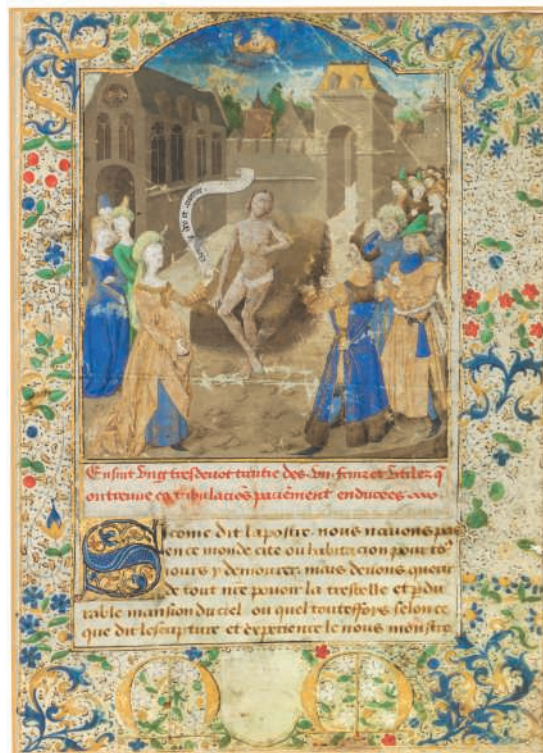 Ensuit Vng tresdeuot traitie des .vii. fruiz et vtilez q̄
on treuue es tribulaciōs paciēment endurees
Si come dit lapostre. nous nauons pas
en ce monde cite ou habitacion pour to⁹
iours y demourer. mais deuons querir
de tout nr̄e pouoir la tresbelle et p̄du
rable mansion du ciel ou quel toutesfoys selon ce
que dit lescripture et experience le nous monstre